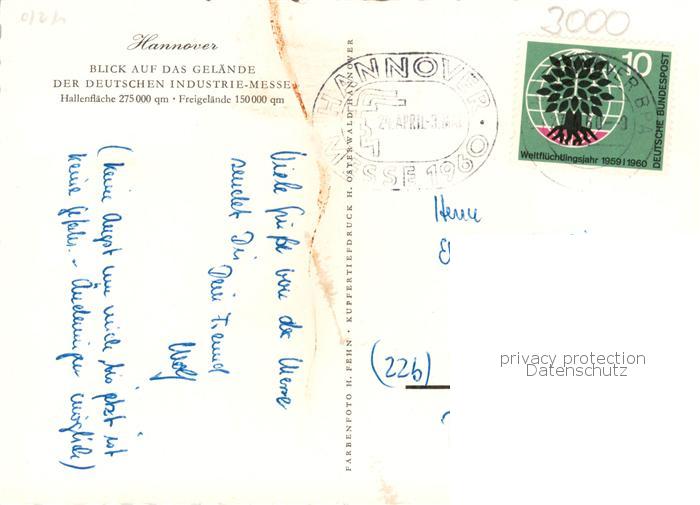 3000
Hannover
BLICK AUF DAS GELÄNDE
DER DEUTSCHEN INDUSTRIE-MESSE
Hallenfläche 275 000 qm · Freigelände 150 000 qm
Viele Grüße von der Messe
sendet Dir
Dein Freund
Wolf
(Keine Angst um mich, bis jetzt ist
keine Gefahr. - Änderungen möglich)
FARBENFOTO H. FEHN · KUPFERTIEFDRUCK H. OSTERWALD HANNOVER
HANNOVER
APRIL-3.MAI
MESSE 1960
10
DEUTSCHE BUNDESPOST
Weltflüchtlingsjahr 1959|1960
Herrn
(22b)
privacy protection
Datenschutz